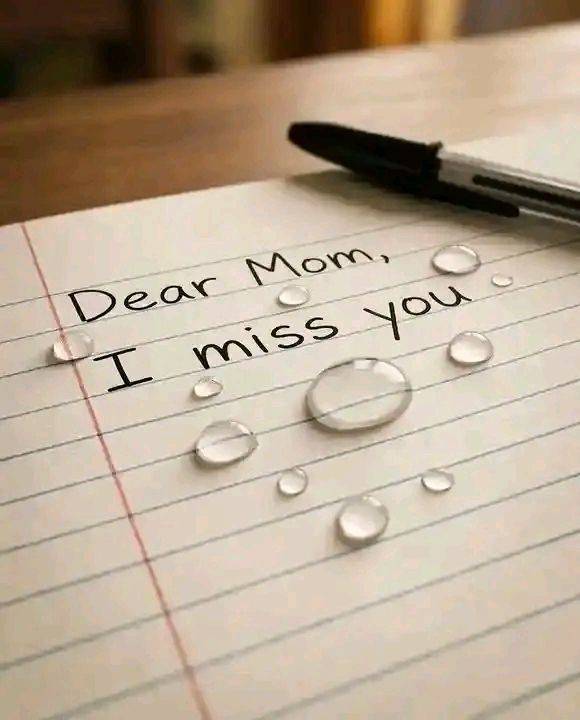 Dear Mom,
I miss you